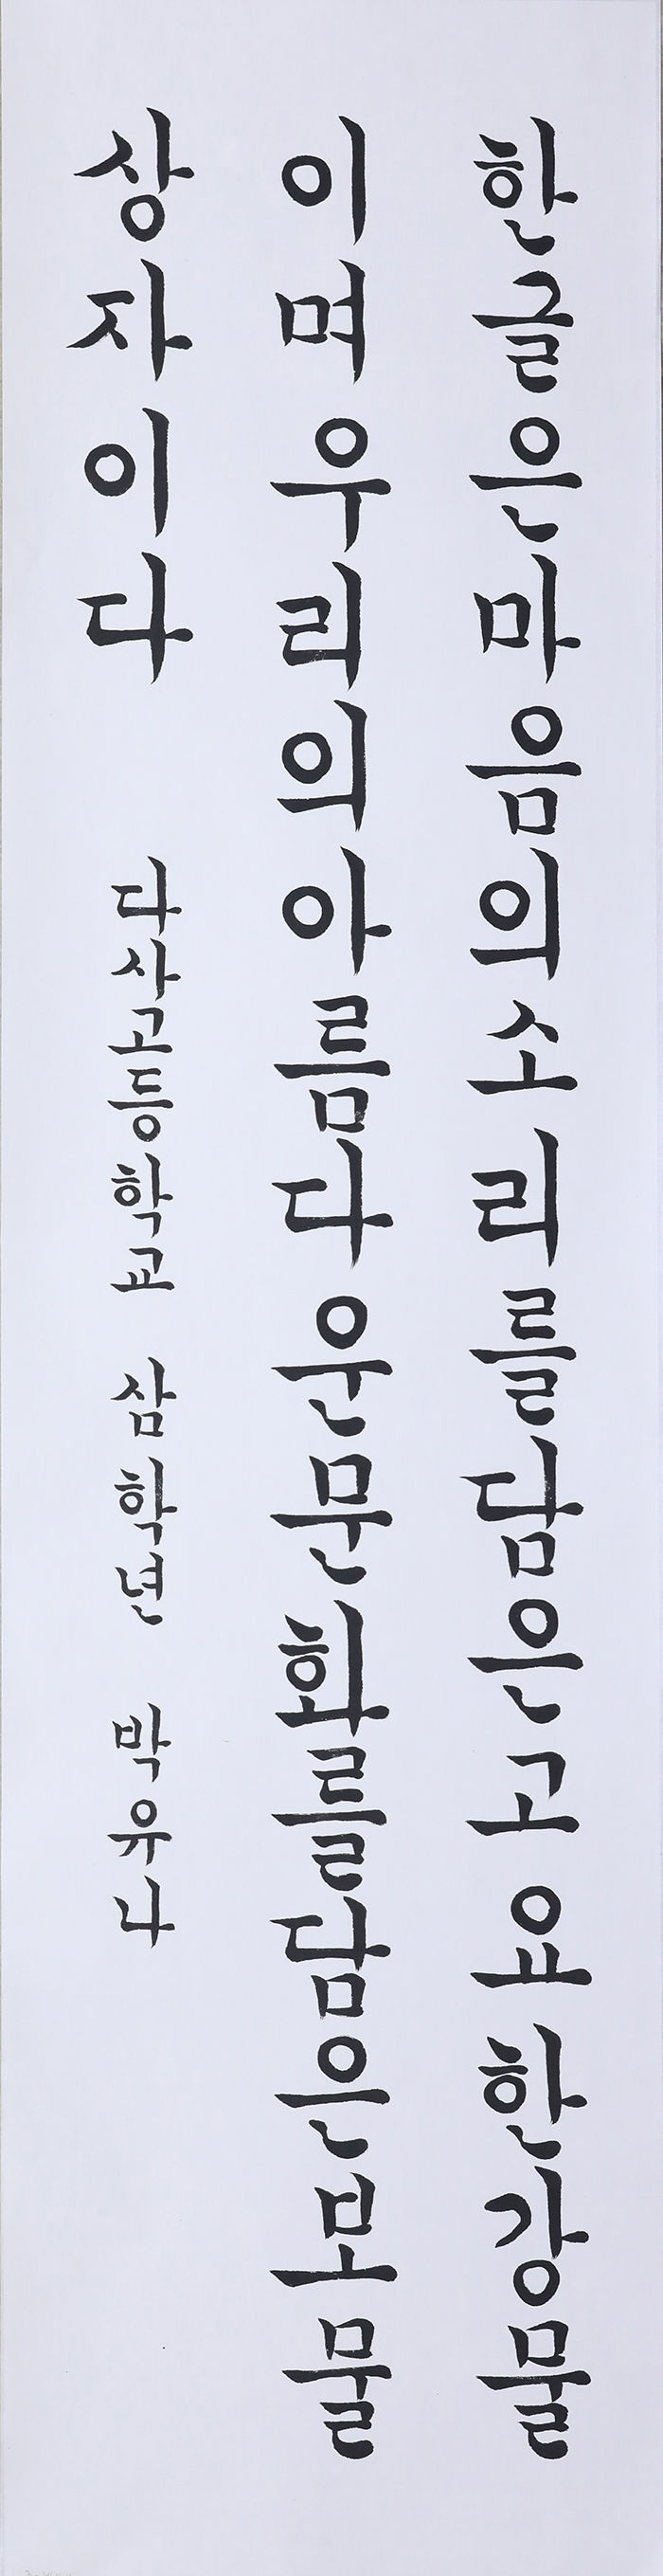 한글은마음의소리를담은고요한강물
이며우리의아름다운문화를담은보물
상자이다
다사고등학교 삼학년 박유나